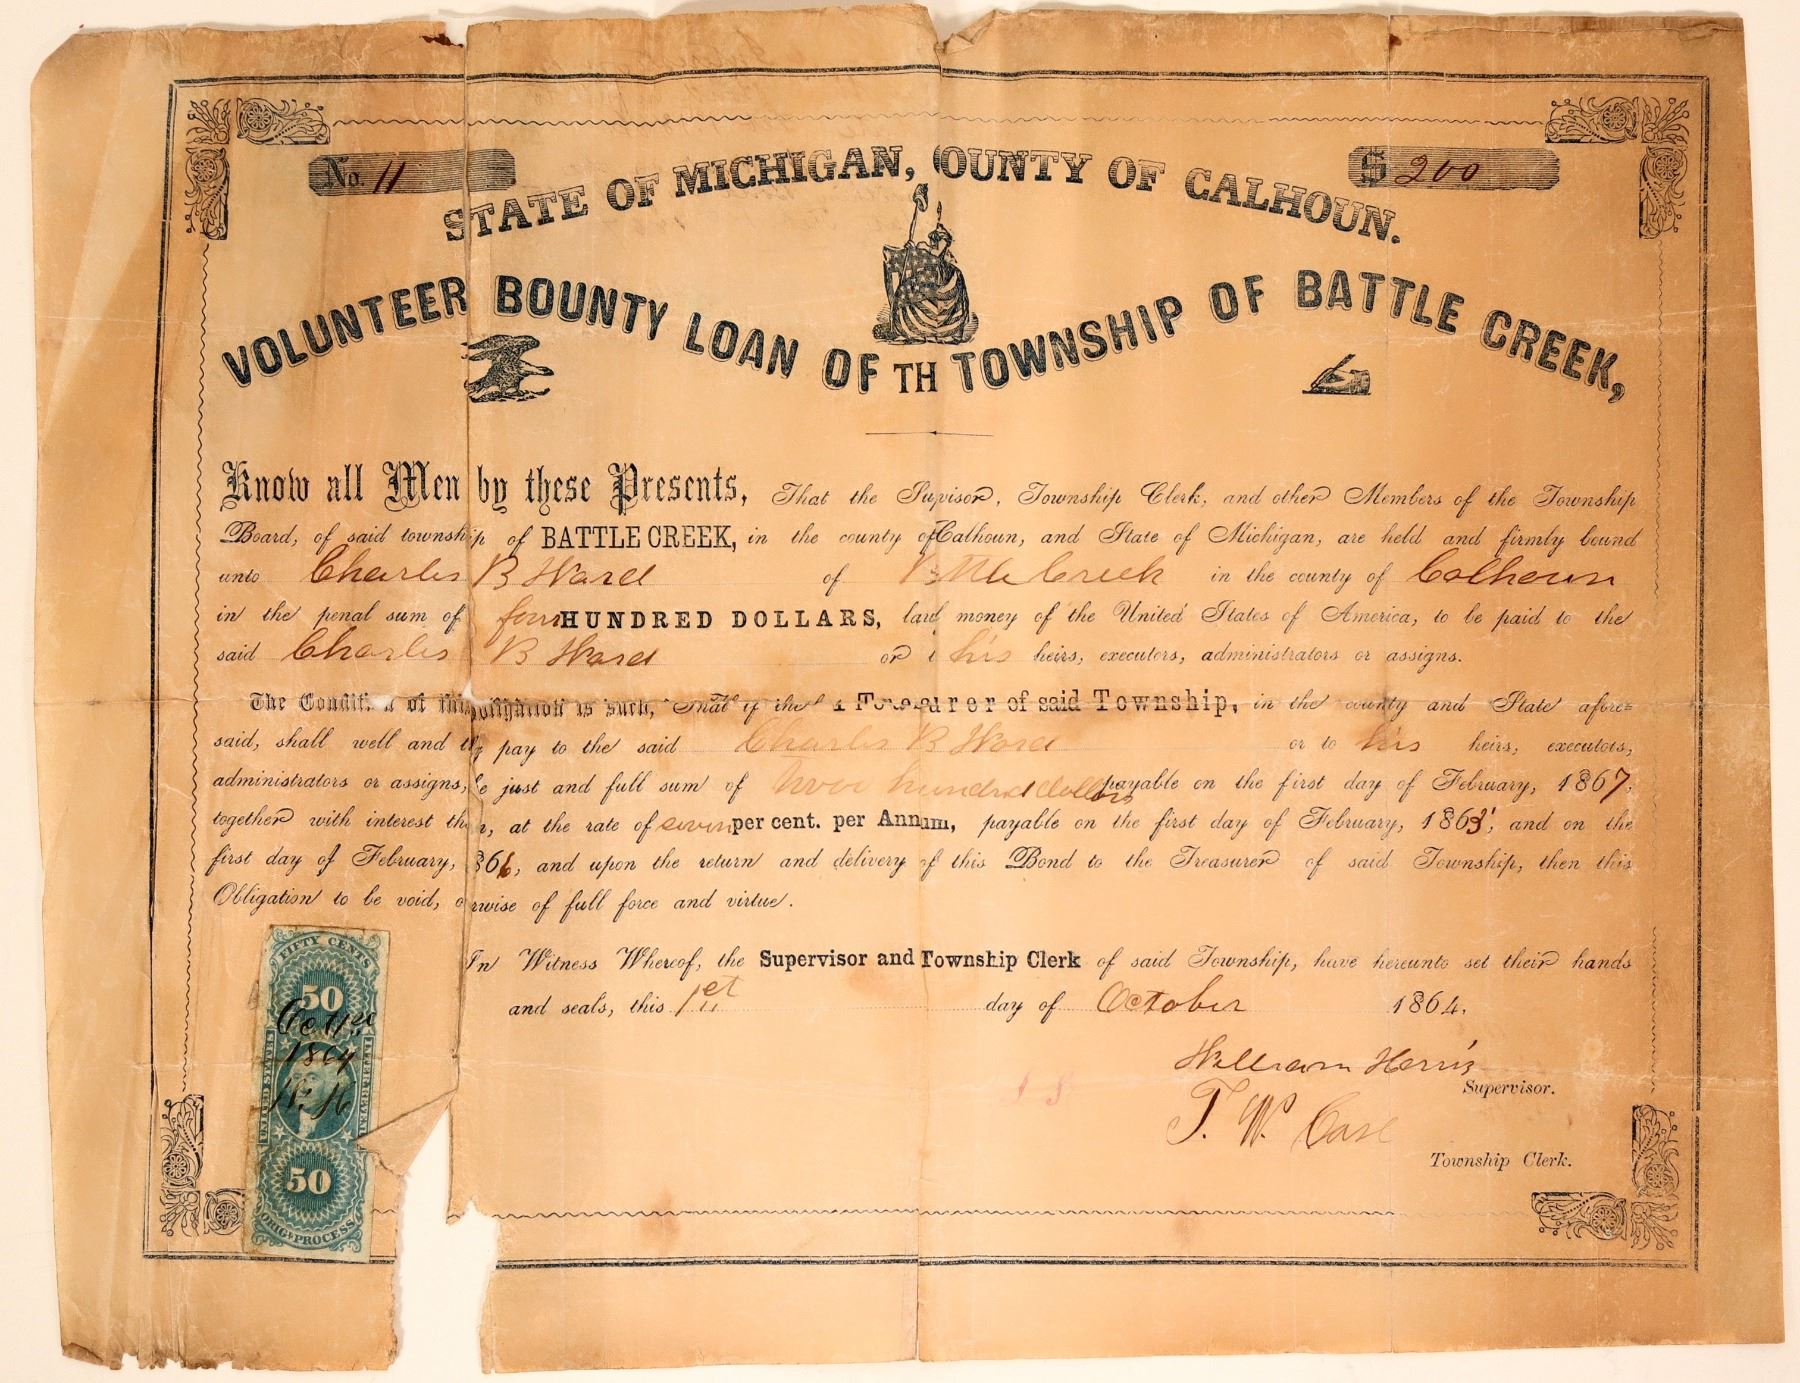 No. 11
$ 200
STATE OF MICHIGAN, OUNTY OF CALHOUN.
VOLUNTEER BOUNTY LOAN OF TH TOWNSHIP OF BATTLE CREEK,
Know all Men by these Presents, That the Supvisor, Township Clerk, and other Members of the Township
Board, of said township of BATTLE CREEK, in the county of Calhoun, and State of Michigan, are held and firmly bound
unto Charles B Ward of B ttle Creek in the county of Calhoun
in the penal sum of four HUNDRED DOLLARS, laul money of the United States of America, to be paid to the
said Charles B Ward or his heirs, executors, administrators or assigns.
The Condit n of this obligation is such, That if the Treasurer of said Township, in the county and State afore=
said, shall well and t ly pay to the said Charles B Ward or to his heirs, executors,
administrators or assigns, e just and full sum of two hundred dollars payable on the first day of February, 1867,
together with interest the n, at the rate of seven per cent. per Annum, payable on the first day of February, 1865, and on the
first day of February, 866, and upon the return and delivery of this Bond to the Treasurer of said Township, then this
Obligation to be void, o rwise of full force and virtue.
In Witness Whereof, the Supervisor and Township Clerk of said Township, have hereunto set their hands
and seals, this 1st day of October 1864.
William Herris
Supervisor.
T. W. Case
Township Clerk.
FIFTY CENTS
50
Oct 1st
1864
W. H
UNITED STATES
INTER. REVENUE
50
ORIG. PROCESS